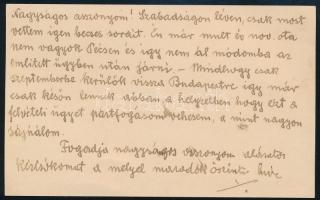 Nagyságos asszonyom! Szabadságon léven, csak most
vettem igen becses sorait. Én már mult év nov. óta
nem vagyok Pécsen és igy nem ál módomba az
emlitett ügyben után járni – Mindhogy csak
szeptemberbe kerülök vissza Budapestre igy már
csak késön lennék abban a helyzetben hogy ezt a
felvételi ügyet pártfogásomba vehessem, a mint nagyon
sajnálom.
Fogadja nagyságos asszonyom alázatos
kézcsókomat a melyel maradok öszint hive